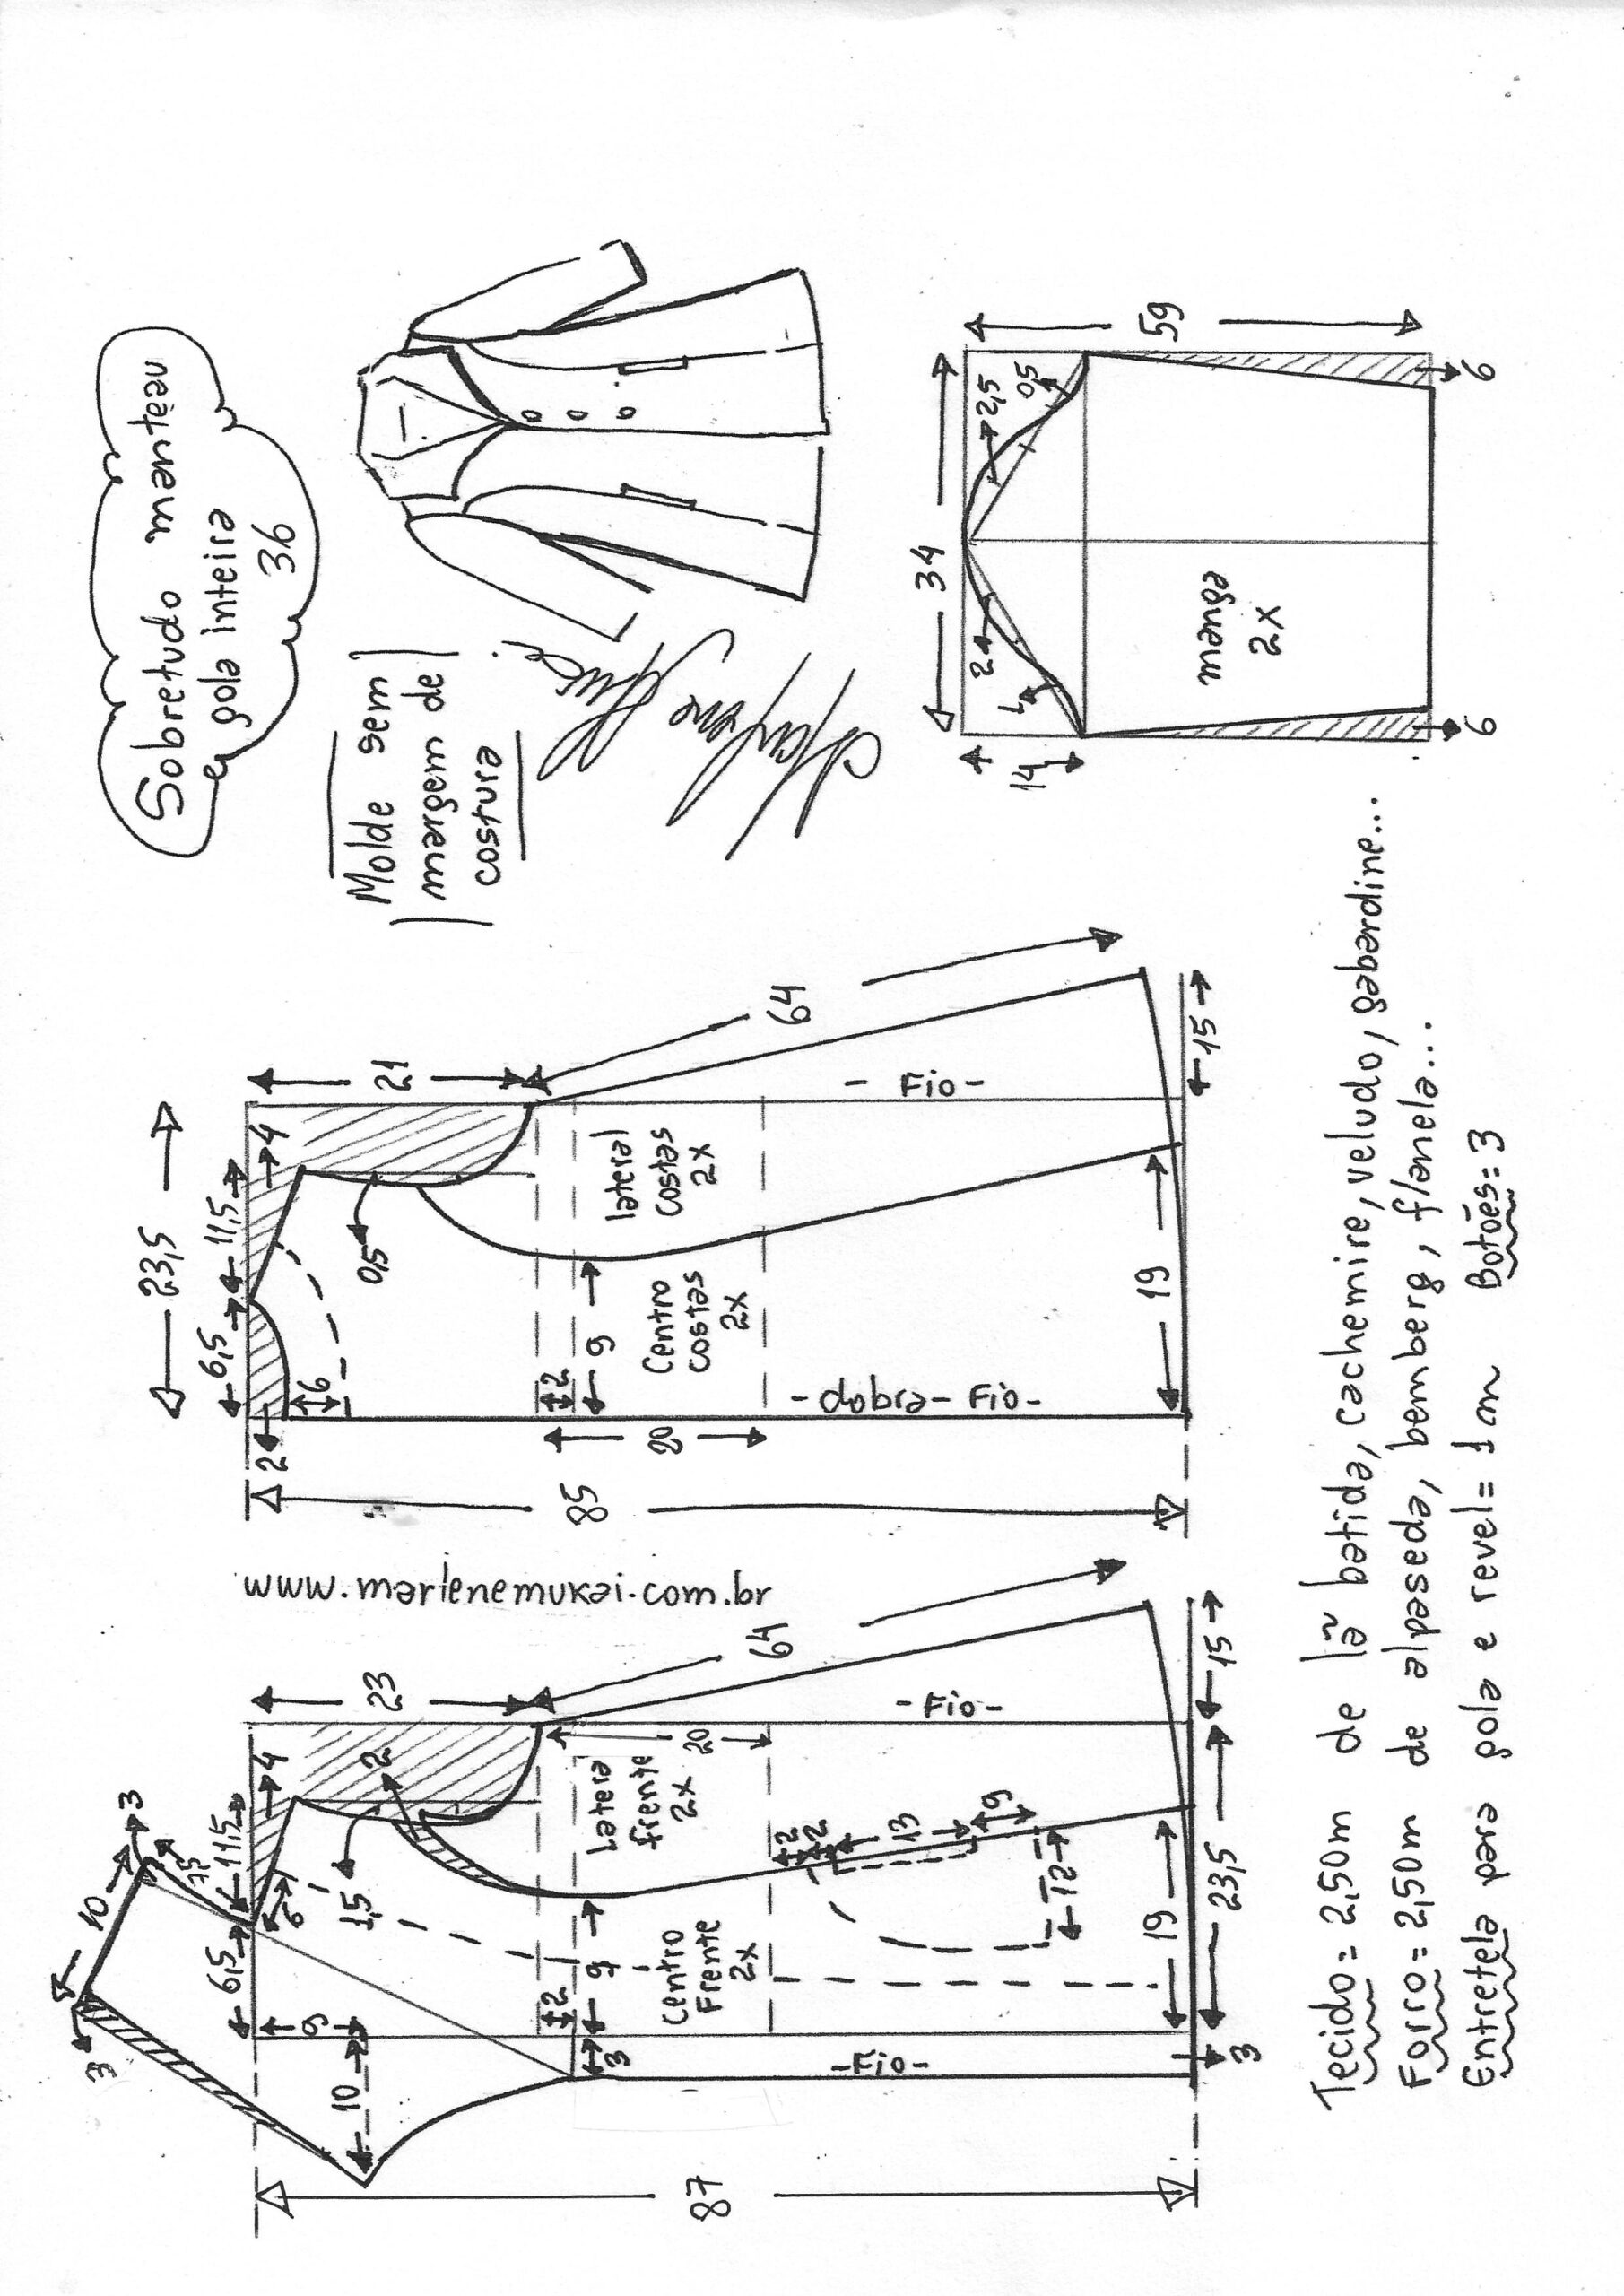 Sobretudo manteau
gola inteira
36
Molde sem
margem de
costura
www.marlenemukai.com.br
87
10
3
3
10
7,5
6,5
11,5
4
9
6
1,5
2
23
64
2
3
9
Lateral
frente
2x
20
Centro
Frente
2x
2
2
13
9
12
-Fio-
-Fio-
19
3
23,5
15
23,5
6,5
11,5
4
2
6
0,5
21
64
85
20
2
9
lateral
costas
2x
Centro
costas
2x
-dobra-Fio-
-Fio-
19
15
34
14
1
2
2,5
0,5
59
manga
2x
6
6
Tecido = 2,50m de lã batida, cachemire, veludo, gabardine...
Forro = 2,50m de alpaseda, bemberg, flanela...
Entretela para gola e revel = 1m Botões = 3